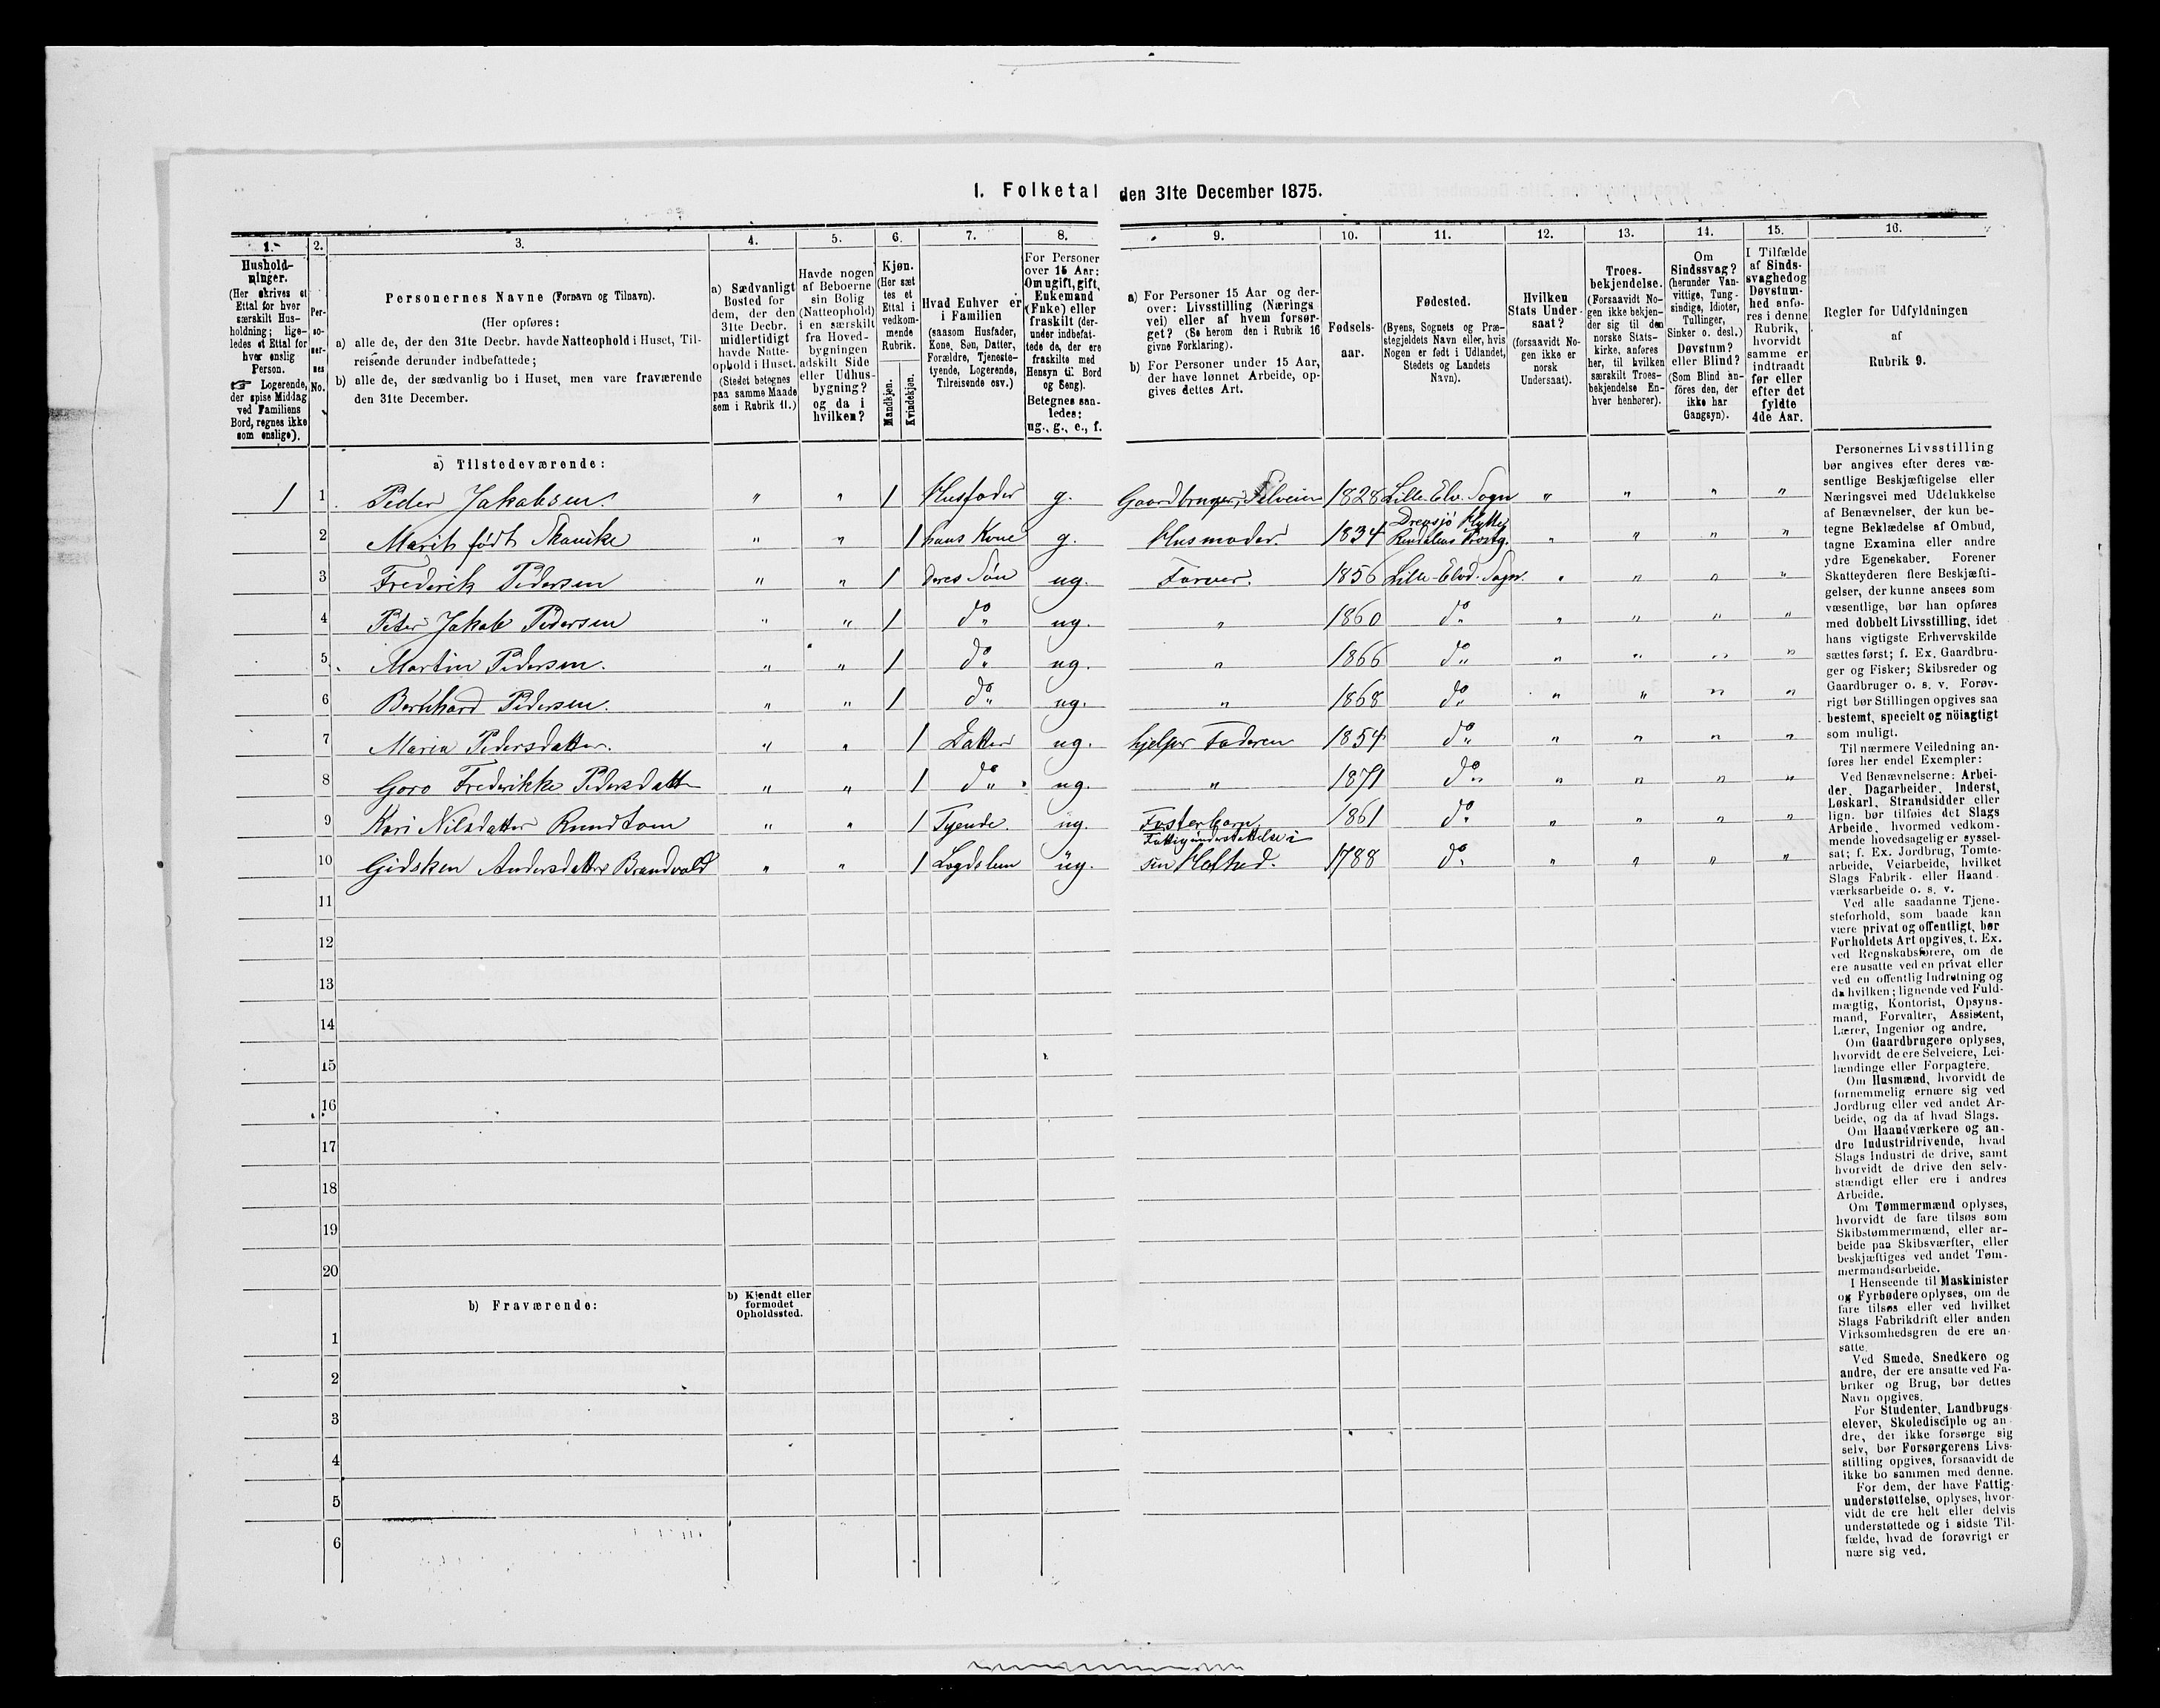 1. Folketal den 31te December 1875.
1. 2. 3. 4. 5. 6. 7. 8. 9. 10. 11. 12. 13. 14. 15. 16.
Hushold-
ninger.
(Her skrives et
Ettal for hver
særskilt Hus-
holdning; lige-
ledes et Ettal for
hver enslig
Person.
☞ Logerende,
der spise Middag
ved Familiens
Bord, regnes ikke
som enslige).
Per-
so-
ner-
nes
No.
Personernes Navne (Fornavn og Tilnavn).
(Her opføres:
a) alle de, der den 31te Decbr. havde Natteophold i Huset, Til-
reisende derunder indbefattede;
b) alle de, der sædvanlig bo i Huset, men vare fraværende
den 31te December.
a) Sædvanligt
Bosted for
dem, der den
31te Decbr.
midlertidigt
havde Natte-
ophold i Huset.
(Stedet betegnes
paa samme Maade
som i Rubrik 11.)
Havde nogen
af Beboerne
sin Bolig
(Natteophold)
i en særskilt
fra Hoved-
bygningen
adskilt Side
eller Udhus-
bygning?
og da i
hvilken?
Kjøn.
(Her sæt
tes et
Ettal i
vedkom-
mende
Rubrik.
Mandkjøn.
Kvindekjøn.
Hvad Enhver er
i Familien
(saasom Husfader,
Kone, Søn, Datter,
Forældre, Tjeneste-
tyende, Logerende,
Tilreisende osv.)
For Personer
over 15 Aar:
Om ugift, gift,
Enkemand
(Enke) eller
fraskilt (der-
under indbefat-
tede de, der ere
fraskilte med
Hensyn til Bord
og Seng).
Betegnes saa-
ledes:
ug., g., e., f.
a) For Personer 15 Aar og der-
over: Livsstilling (Nærings
vei) eller af hvem forsør-
get? (Se herom den i Rubrik 16
givne Forklaring).
b) For Personer under 15 Aar,
der have lønnet Arbeide, op-
gives dettes Art.
Fødsels-
aar.
Fødested.
(Byens, Sognets og Præ-
stegjeldets Navn eller, hvis
Nogen er født i Udlandet,
Stedets og Landets
Navn).
Hvilken
Stats Under-
saat?
(forsaavidt No-
gen ikke er
norsk
Undersaat).
Troes-
bekjendelse.
(Forsaavidt No-
gen ikke bekjen-
der sig til den
norske Stats-
kirke, anføres
her, til hvilken
særskilt Troes-
bekjendelse En-
hver henhører).
Om
Sindssvag?
(herunder Van-
vittige, Tung-
sindige, Idioter,
Tullinger,
Sinker o. desl.)
Døvstum?
eller Blind?
(Som Blind an-
føres den, der
ikke har
Gangsyn).
I Tilfælde
af Sinds-
svaghed og
Døvstum-
hed anfø-
res i denne
Rubrik,
hvorvidt
samme er
indtraadt
før eller
efter det
fyldte
4de Aar.
Regler for Udfyldningen
af
Rubrik 9.
a) Tilstedeværende:
1 1 Peder Jakobsen. " " 1 Husfader g. Gaardbruger, Selveier 1828 Lille-Elv. Sogn " " " "
2 Marit født " " 1 hans Kone g. Husmoder. 1834 Hytte " " " "
3 Frederik Pedersen " " 1 deres Søn ug. Farver. 1856 Lille-Elvd. Sogn " " " "
4 Peter Jakob Pedersen " " 1 do ug. " 1860 do " " " "
5 Martin Pedersen. " " 1 do ug. " 1866 do " " " "
6 Bernhard Pedersen. " " 1 do ug. " 1868 do " " " "
7 Maria Pedersdatter. " " 1 Datter ug. hjelper Faderen 1854 do " " " "
8 Goro Frederikke Pedersdatter " " 1 do ug. " 1871 do " " " "
9 Kari Nilsdatter " " 1 Tyende. ug. Fosterbarn. 1861 do " " " "
10 Gidsken Andersdatter Brandvold " " 1 Lægdslem ug. Fattigunderstøttelse i
sin Helhed. 1788 do " " " "
11
12
13
14
15
16
17
18
19
20
b) Fraværende:
b) Kjendt eller
formodet
Opholdssted.
1
2
3
4
5
6
Personernes Livsstilling
bør angives efter deres væ-
sentlige Beskjæftigelse eller
Næringsvei med Udelukkelse
af Benævnelser, der kun be-
tegne Beklædelse af Ombud,
tagne Examina eller andre
ydre Egenskaber. Forener
Skatteyderen flere Beskjæfti-
gelser, der kunne ansees som
væsentlige, bør han opføres
med dobbelt Livsstilling, idet
hans vigtigste Erhvervskilde
sættes først; f. Ex. Gaardbru-
ger og Fisker; Skibsreder og
Gaardbruger o. s. v. Forøv-
rigt bør Stillingen opgives saa
bestemt, specielt og nöiagtigt
som muligt.
Til nærmere Veiledning an-
føres her endel Exempler:
Ved Benævnelserne: Arbei-
der, Dagarbeider, Inderst,
Løskarl, Strandsidder eller
lign. bør tilføies det Slags
Arbeide, hvormed vedkom-
mende hovedsagelig er syssel-
sat; f. Ex. Jordbrug, Tomte-
arbeide, Veiarbeide, hvilket
Slags Fabrik- eller Haand-
værksarbeide o. s. v.
Ved alle saadanne Tjene-
steforhold, som baade kan
være privat og offentligt, bør
Forholdets Art opgives, t. Ex.
ved Regnskabsførere, om de
ere ansatte ved en privat eller
ved en offentlig Indretning og
da hvilken; lignende ved Fuld-
mægtig, Kontorist, Opsyns-
mand, Forvalter, Assistent,
Lærer, Ingeniør og andre.
Om Gaardbrugere oplyses,
hvorvidt de ere Selveiere, Lei-
lændinge eller Forpagtere.
Om Husmænd, hvorvidt de
fornemmelig ernære sig ved
Jordbrug eller ved andet Ar-
beide, og da af hvad Slags.
Om Haandværkere og an-
dre Industridrivende, hvad
Slags Industri de drive, samt
hvorvidt de drive den selv-
stændigt eller ere i andres
Arbeide.
Om Tømmermænd oplyses,
hvorvidt de fare tilsøs som
Skibstømmermænd, eller ar-
beide paa Skibsværfter, eller
beskjæftiges ved andet Tøm-
mermandsarbeide.
I Henseende til Maskinister
og Fyrbødere oplyses, om de
fare tilsøs eller ved hvilket
Slags Fabrikdrift eller anden
Virksomhedsgren de ere an-
satte.
Ved Smede, Snedkere og
andre, der ere ansatte ved Fa-
briker og Brug, bør dettes
Navn opgives.
For Studenter, Landbrugs
elever, Skoledisciple og an-
dre, der ikke forsørge sig
selv, bør Forsørgerens Livs-
stilling opgives, forsaavidt de
ikke bo sammen med denne.
For dem, der have Fattig-
understøttelse, oplyses, hvor-
vidt de ere helt eller delvis
understøttede og i sidste Til-
fælde, hvad de forøvrigt er
nære sig ved.